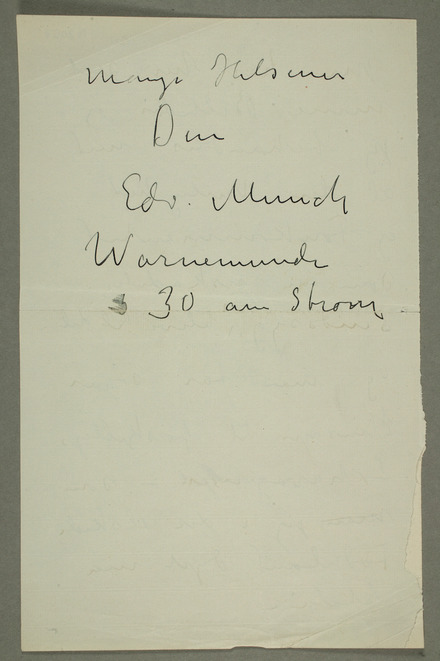 Mange Hilsener
Din
Edv. Munch
Warnemünde
30 am Strom